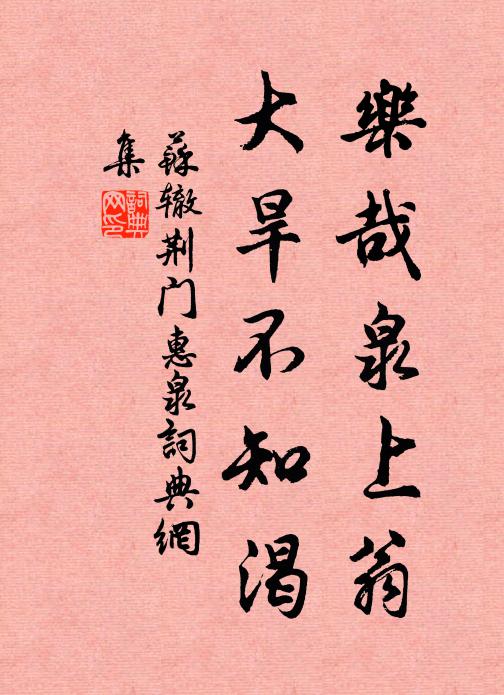 樂哉泉上翁
大旱不知渴
蘇辙荆门惠泉詞典網
集
詞典
网印